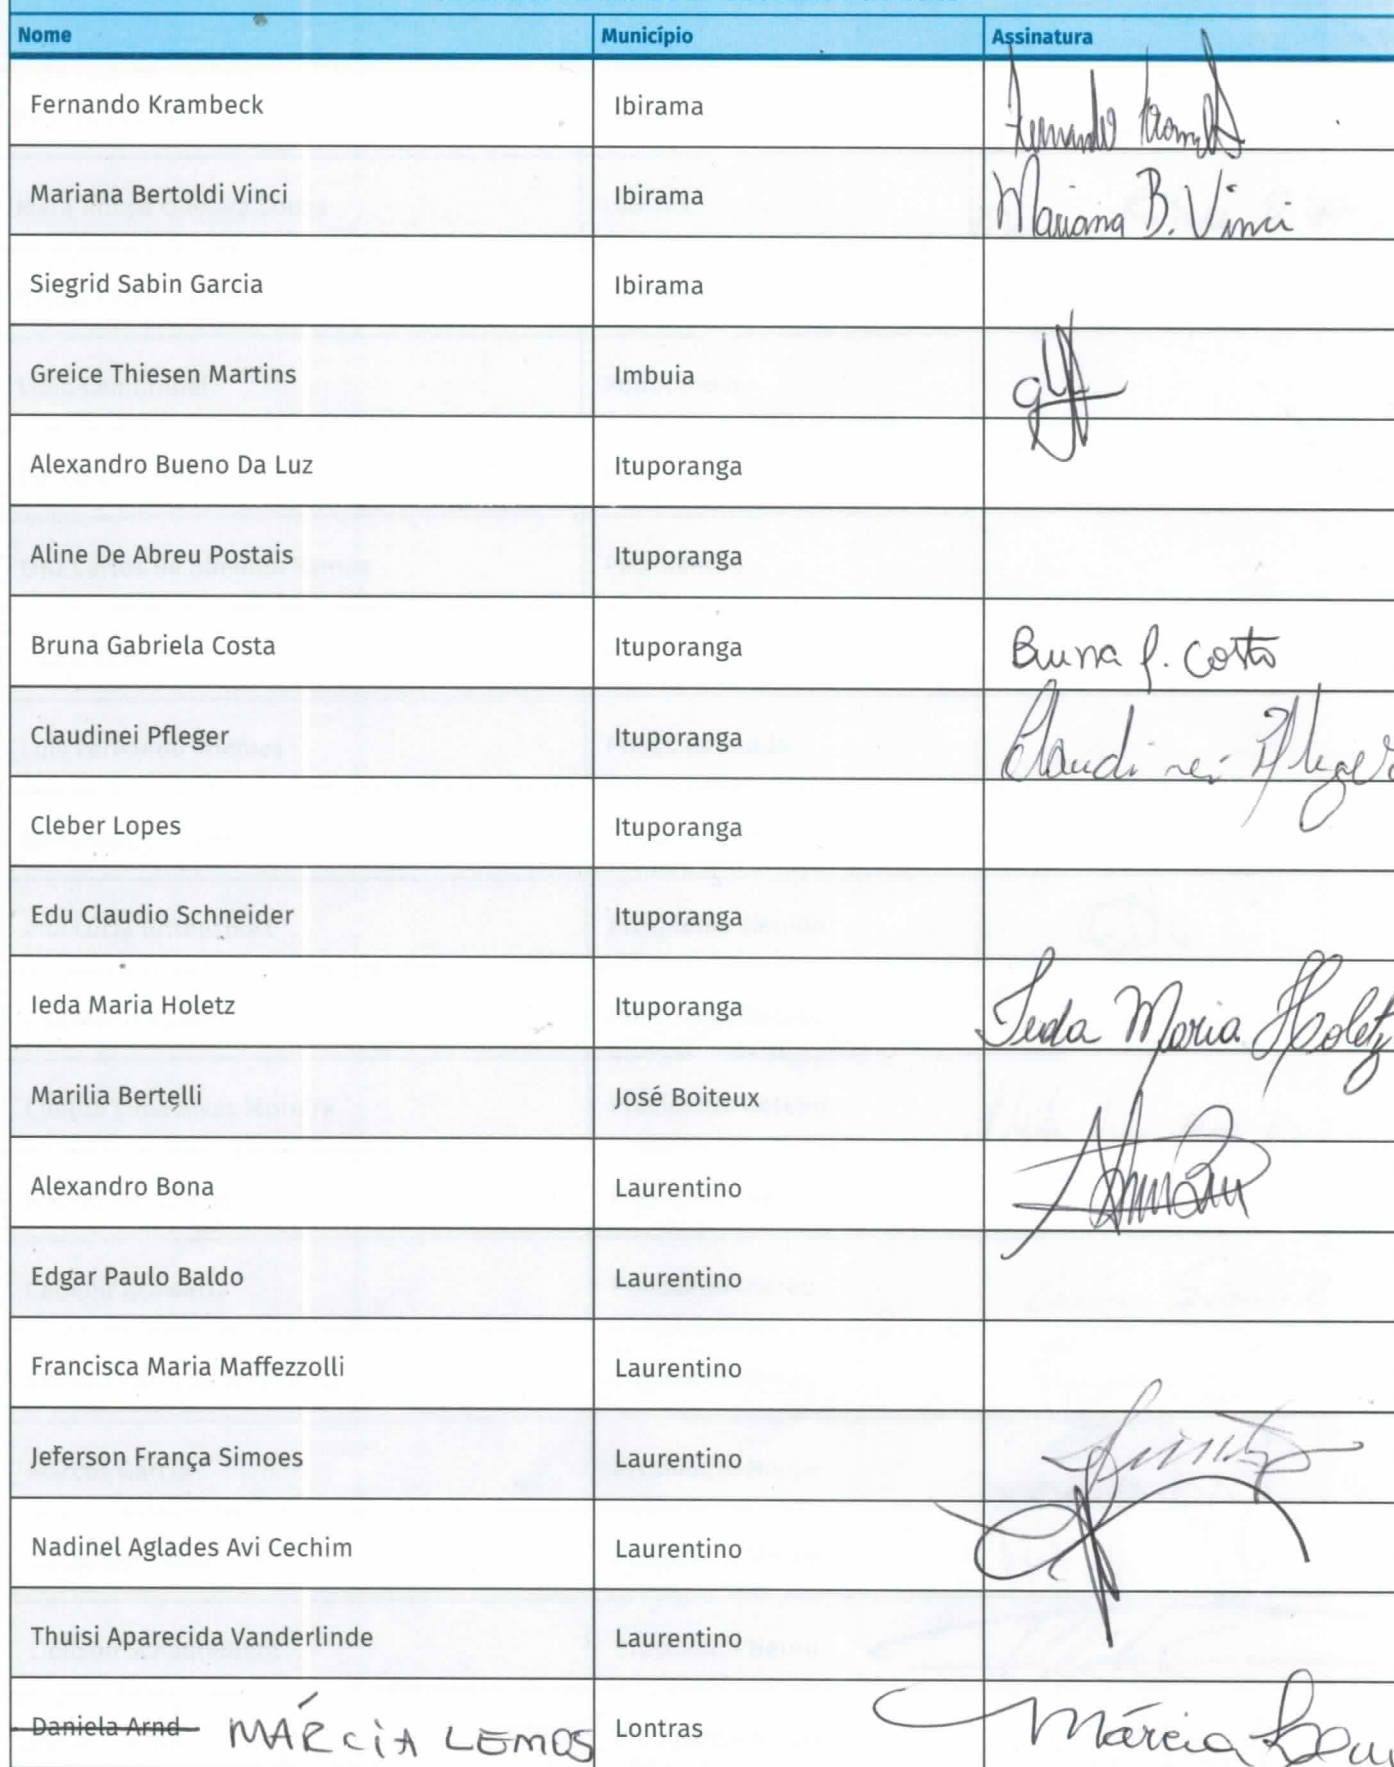 Nome Município Assinatura
Fernando Krambeck Ibirama
Mariana Bertoldi Vinci Ibirama Mariana B. Vinci
Siegrid Sabin Garcia Ibirama
Greice Thiesen Martins Imbuia
Alexandro Bueno Da Luz Ituporanga
Aline De Abreu Postais Ituporanga
Bruna Gabriela Costa Ituporanga Bruna G. Costa
Claudinei Pfleger Ituporanga Claudinei Pfleger
Cleber Lopes Ituporanga
Edu Claudio Schneider Ituporanga
Ieda Maria Holetz Ituporanga Ieda Maria Holetz
Marilia Bertelli José Boiteux
Alexandro Bona Laurentino
Edgar Paulo Baldo Laurentino
Francisca Maria Maffezzolli Laurentino
Jeferson França Simoes Laurentino
Nadinel Aglades Avi Cechim Laurentino
Thuisi Aparecida Vanderlinde Laurentino
Daniela Arnd MÁRCIA LEMOS Lontras Márcia